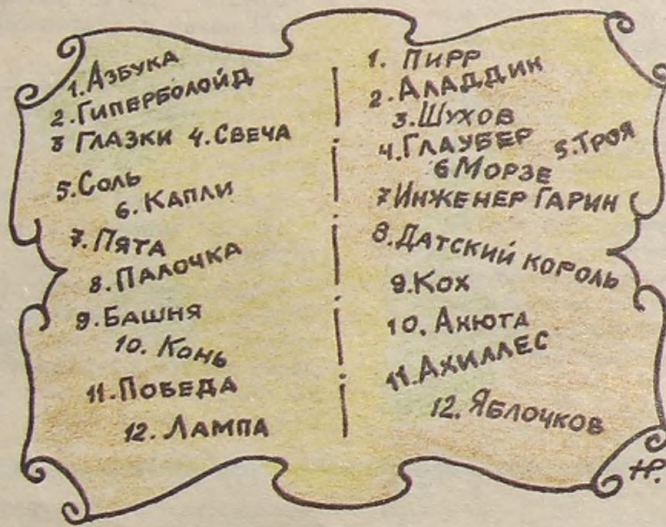 1. АЗБУКА
2. ГИПЕРБОЛОИД
3 ГЛАЗКИ 4. СВЕЧА
5. СОЛЬ
6. КАПЛИ
7. ПЯТА
8. ПАЛОЧКА
9. БАШНЯ
10. КОНЬ
11. ПОБЕДА
12. ЛАМПА
1. ПИРР
2. АЛАДДИН
3. ШУХОВ
4. ГЛАУБЕР 5. ТРОЯ
6 МОРЗЕ
7 ИНЖЕНЕР ГАРИН
8. ДАТСКИЙ КОРОЛЬ
9. КОХ
10. АНЮТА
11. АХИЛЛЕС
12. ЯБЛОЧКОВ